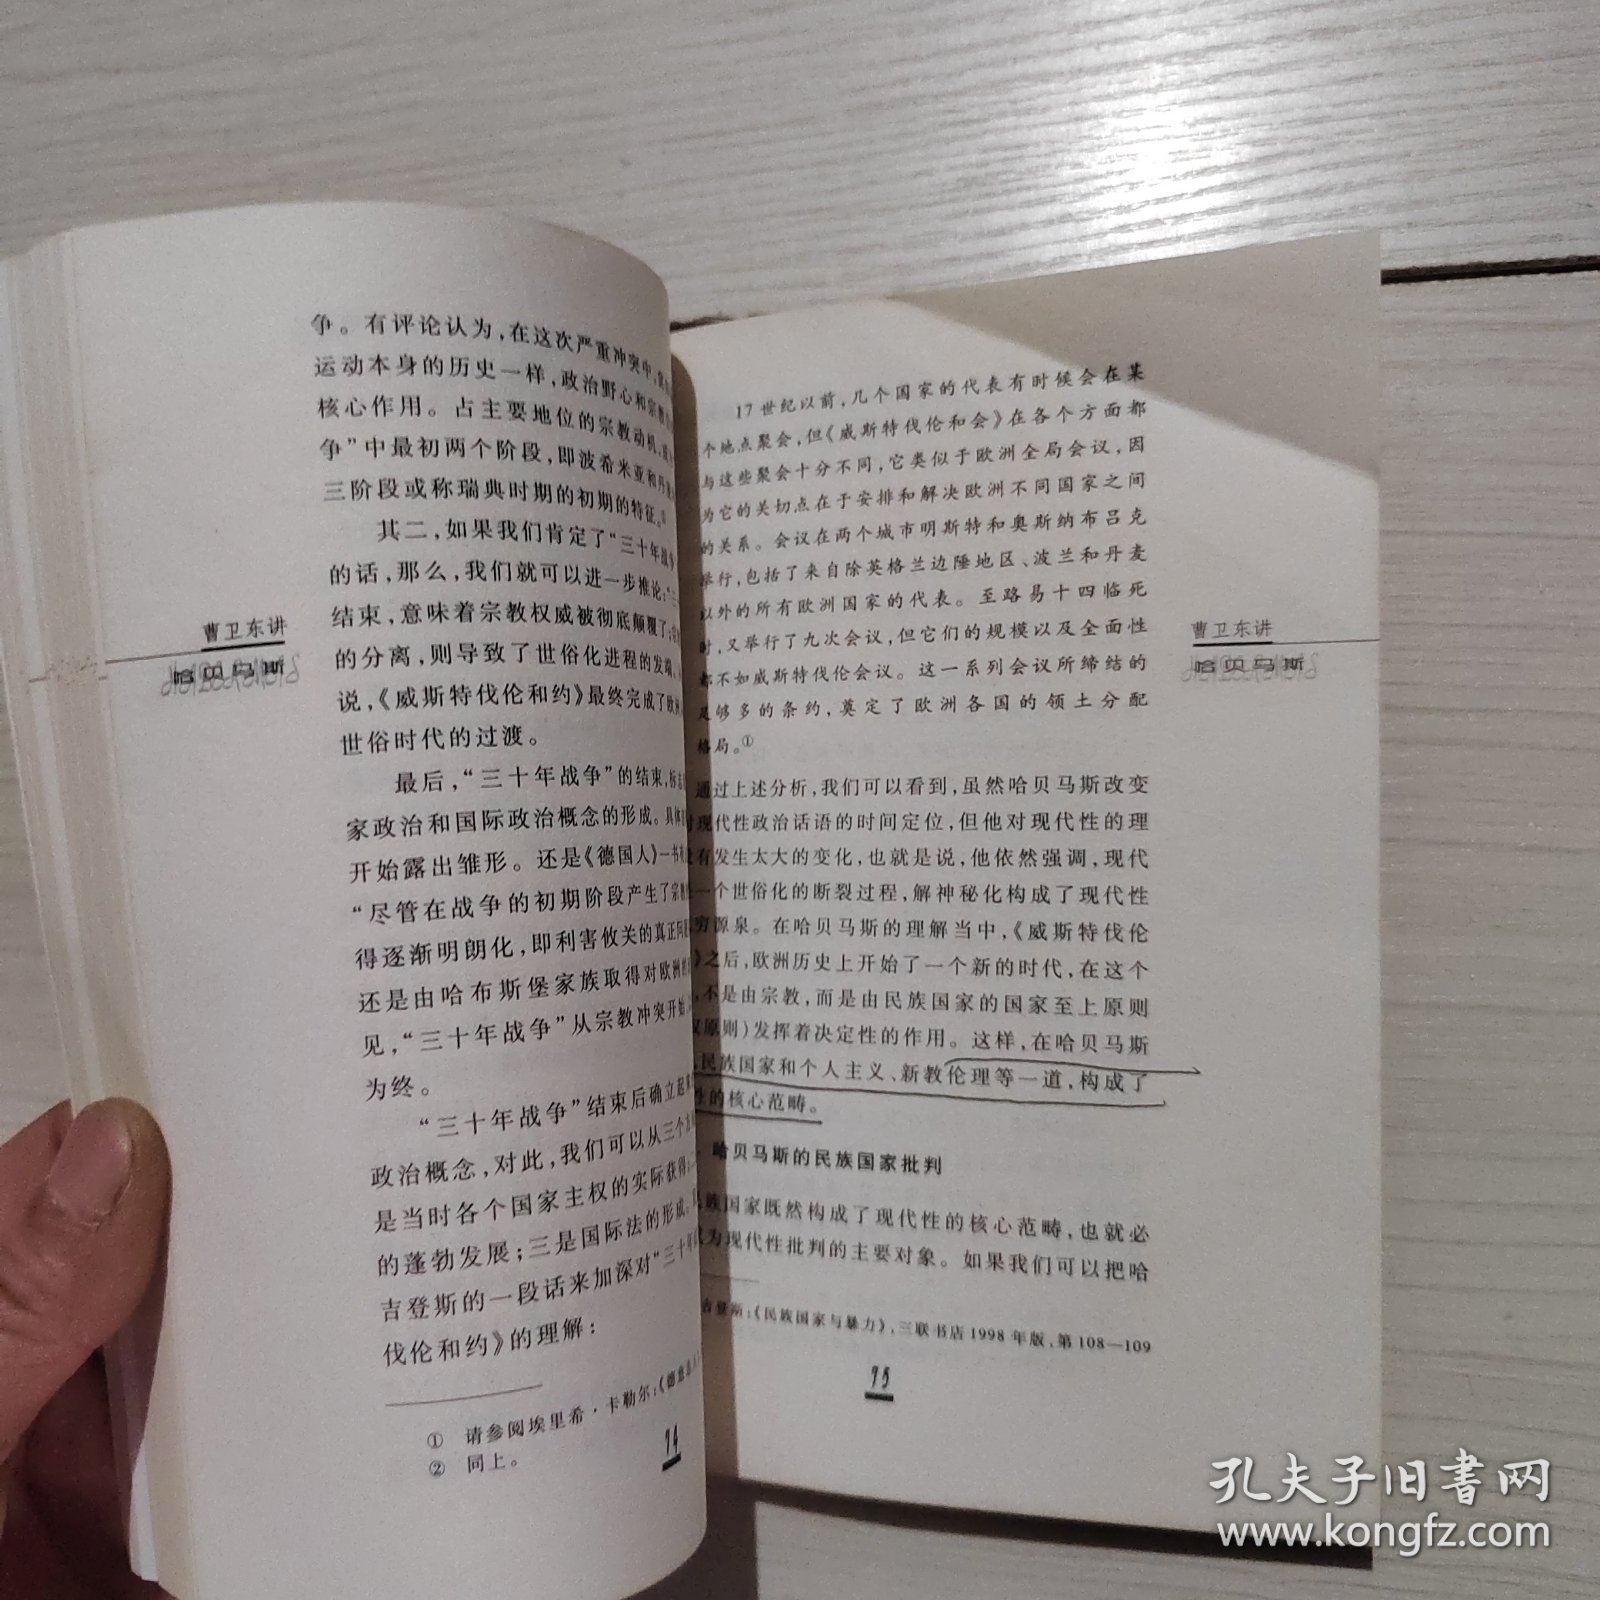 争。有评论认为,在这次严重冲突中,
运动本身的历史一样,政治野心和宗教
核心作用。占主要地位的宗教动机,
争”中最初两个阶段,即波希米亚和丹
三阶段或称瑞典时期的初期的特征。①
其二,如果我们肯定了“三十年战争
的话,那么,我们就可以进一步推论:“三
结束,意味着宗教权威被彻底颠覆了;
的分离,则导致了世俗化进程的发端。
说,《威斯特伐伦和约》最终完成了欧
世俗时代的过渡。
最后,“三十年战争”的结束,标志
家政治和国际政治概念的形成。具体
开始露出雏形。还是《德国人》一书
“尽管在战争的初期阶段产生了宗
得逐渐明朗化,即利害攸关的真正问
还是由哈布斯堡家族取得对欧洲
见,“三十年战争”从宗教冲突开始,
为终。
“三十年战争”结束后确立起
政治概念,对此,我们可以从三个
是当时各个国家主权的实际获得;
的蓬勃发展;三是国际法的形成。
吉登斯的一段话来加深对“三十年
伐伦和约》的理解:
① 请参阅埃里希·卡勒尔:《德意志人
② 同上。
74
曹卫东讲
哈贝马斯
17世纪以前,几个国家的代表有时候会在某
个地点聚会,但《威斯特伐伦和会》在各个方面都
与这些聚会十分不同,它类似于欧洲全局会议,因
为它的关切点在于安排和解决欧洲不同国家之间
的关系。会议在两个城市明斯特和奥斯纳布吕克
举行,包括了来自除英格兰边陲地区、波兰和丹麦
以外的所有欧洲国家的代表。至路易十四临死
时,又举行了九次会议,但它们的规模以及全面性
都不如威斯特伐伦会议。这一系列会议所缔结的
足够多的条约,奠定了欧洲各国的领土分配
格局。①
通过上述分析,我们可以看到,虽然哈贝马斯改变
对现代性政治话语的时间定位,但他对现代性的理
有发生太大的变化,也就是说,他依然强调,现代
一个世俗化的断裂过程,解神秘化构成了现代性
穷源泉。在哈贝马斯的理解当中,《威斯特伐伦
》之后,欧洲历史上开始了一个新的时代,在这个
,不是由宗教,而是由民族国家的国家至上原则
原则)发挥着决定性的作用。这样,在哈贝马斯
民族国家和个人主义、新教伦理等一道,构成了
性的核心范畴。
哈贝马斯的民族国家批判
族国家既然构成了现代性的核心范畴,也就必
为现代性批判的主要对象。如果我们可以把哈
吉登斯:《民族国家与暴力》,三联书店1998年版,第108—109
75
曹卫东讲
哈贝马斯
孔夫子旧书网
www.kongfz.com